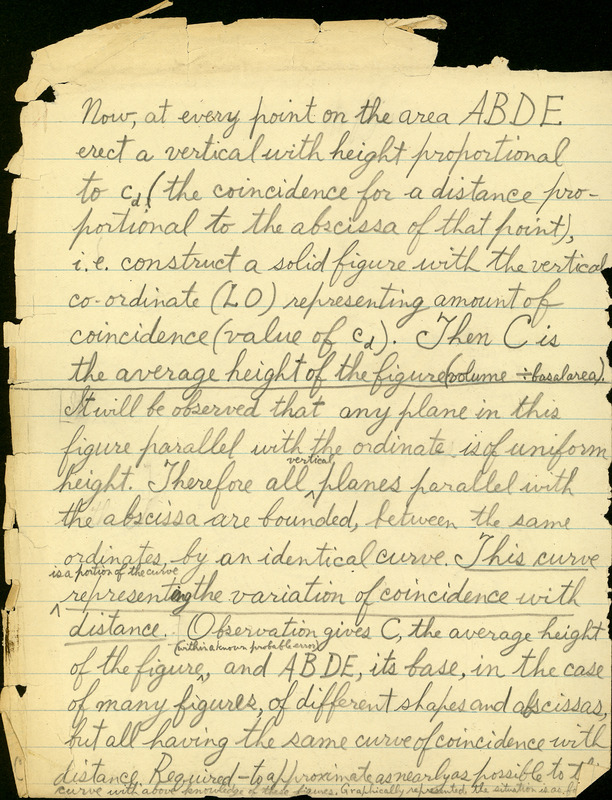 Now, at every point on the area ABDE
erect a vertical with height proportional
to cd (the coincidence for a distance pro-
portional to the abscissa of that point),
i.e. construct a solid figure with the vertical
co-ordinate (LO) representing amount of
coincidence (value of cd). Then C is
the average height of the figure (volume ÷ basal area).
It will be observed that any plane in this
figure parallel with the ordinate is of uniform
vertical
height. Therefore all ^ planes parallel with
the abscissa are bounded, between the same
ordinates, by an identical curve. This curve
is a portion of the curve
^ representing the variation of coincidence with
distance. Observation gives C, the average height
(within a known probable error)
of the figure, ^ and ABDE, its base, in the case
of many figures, of different shapes and abscissas,
but all having the same curve of coincidence with
distance. Required - to approximate as nearly as possible to
curve with above knowledge of these figures. Graphically represented, the situation is as